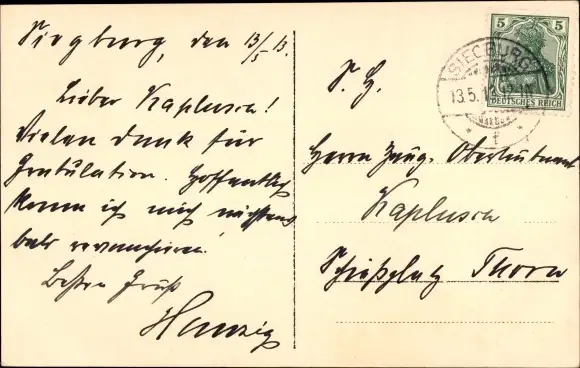 Siegburg, den 13/5 13.
Lieber Kaplusca!
Vielen Dank für
Gratulation. Hoffentlich
kann ich mich nächstens
bald revanchieren.
Besten Gruß
Hennig
5 5
DEUTSCHES REICH
SIEGBURG
13.5.13.12-1N
* f *
S. H.
Herrn Zeug. Oberleutnant
Kaplusca
Schießplatz Thorn